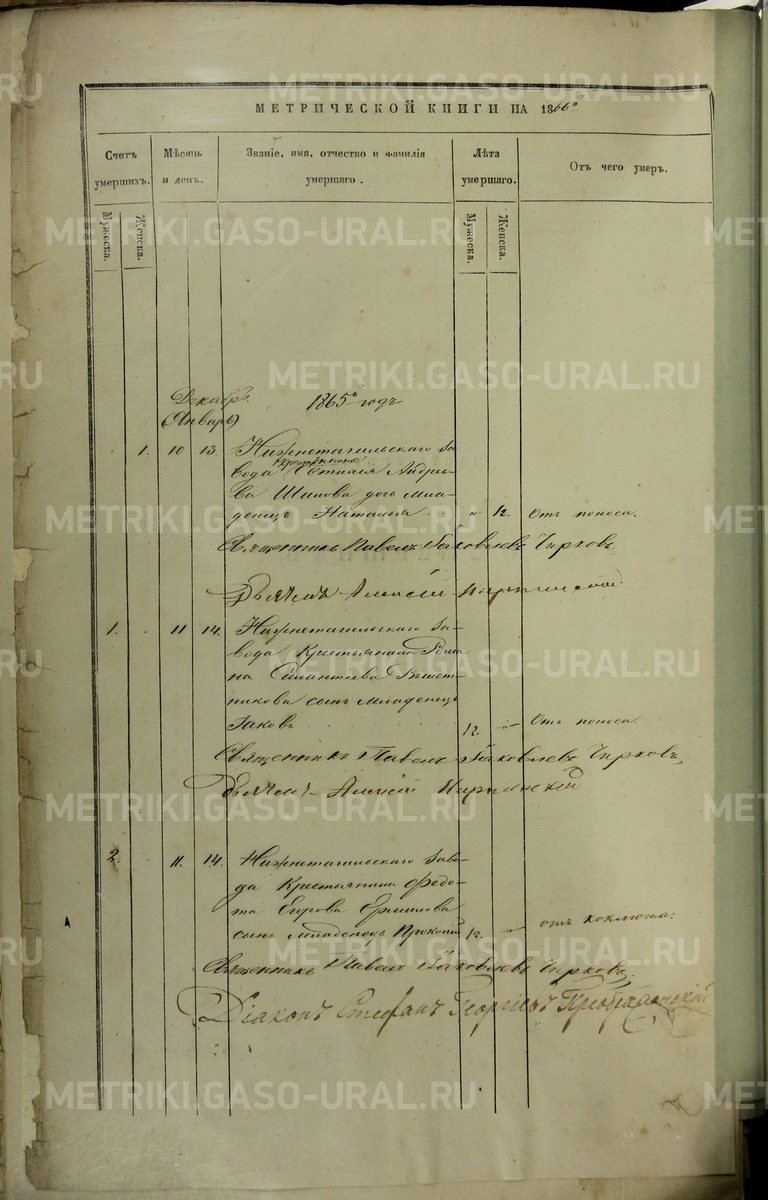 МЕТРИЧЕСКОЙ КНИГИ НА 1866 о
Счетъ умершихъ.
Мужеска.
Женска.
Мѣсяцъ и день.
Званіе, имя, отчество и фамилія умершаго.
Лѣта умершаго.
Мужеска.
Женска.
Отъ чего умеръ.
Декабр.
(Январь)
1865 годъ
1. 10 13 Нижнетагильскаго За-
вода Андрее-
ва Шипова дочь мла-
денецъ Наталья " 1/2. Отъ поноса.
Священникъ Павелъ Яковлевъ Чирковъ
Дьячекъ Алексій
1. 11 14. Нижнетагильскаго За-
вода Крестьянина Рома-
на
сынъ младенецъ
Іаковъ 1/2. " Отъ поноса.
Священникъ Павелъ Яковлевъ Чирковъ,
Дьячекъ Алексій
2. 11. 14. Нижнетагильскаго Заво-
да Крестьянина Федо-
та Ермилова
сынъ младенецъ Прокопій 1/2. " отъ коклюша.
Священникъ Павелъ Яковлевъ Чирковъ.
Діаконъ Стефанъ Георгіевъ Преображенскій
METRIKI.GASO-URAL.RU